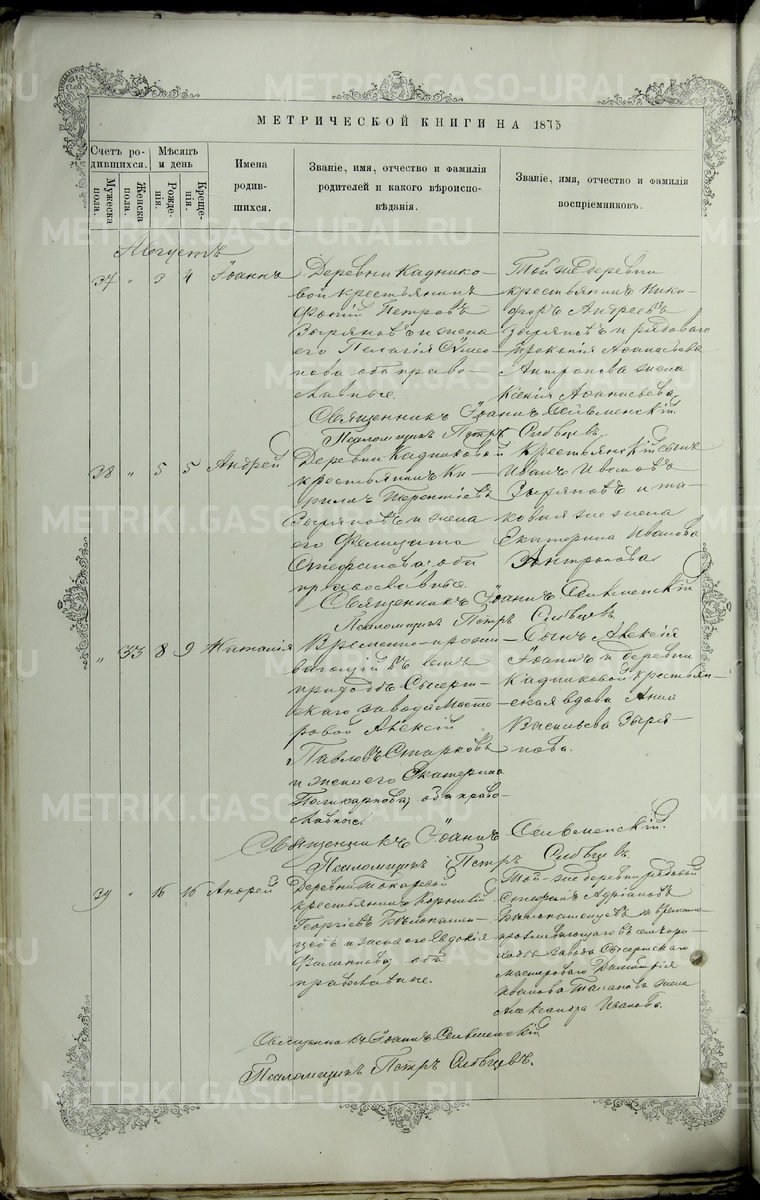 METRIKI.GASO-URAL.RU
МЕТРИЧЕСКОЙ КНИГИ НА 1875
Счетъ ро-
дившихся.
Мужеска
пола.
Женска
пола.
Мѣсяцъ
и день
Рожде-
нія.
Креще-
нія.
Имена
родив-
шихся.
Званіе, имя, отчество и фамилія
родителей и какого вѣроиспо-
вѣданія.
Званіе, имя, отчество и фамилія
воспріемниковъ.
Августъ
37 " 3 4 Іоаннъ
Деревни Каднико-
вой крестьянинъ
Фотій Петровъ
Зыряновъ и жена
его Пелагія
оба право-
славные.
Той же деревни
крестьянинъ Ники-
форъ Андреевъ
Зыряновъ и рядоваго
Прокопія Аѳанасьева
Антропова жена
Ксенія Аѳанасьева
Священникъ Іоаннъ
Псаломщикъ Петръ
38 " 5 5 Андрей
Деревни Кадниковой
крестьянинъ Ки-
рилъ Терентіевъ
Зыряновъ и жена
его Фелицата
Стефанова оба
православные.
Крестьянскій сынъ
Иванъ Ивановъ
Зыряновъ и та-
ковая же жена
Екатерина Иванова
Антропова
Священникъ Іоаннъ
Псаломщикъ Петръ
" 33 8 9 Наталія
Временно-прожи-
вающій въ семъ
приходѣ Сысерт-
скаго завода Масте-
ровой Алексій
Павловъ Старковъ
и жена его Екатерина
Поликарпова, оба право-
славные.
Сынъ Алексія
Іоаннъ и деревни
Кадниковой крестьян-
ская вдова Анна
Васильева Зыря-
нова.
Священникъ Іоаннъ
Псаломщикъ Петръ
39 " 16 16 Андрей
Деревни Токаревой
крестьянинъ Корнилій
Георгіевъ Бѣлоносши-
цевъ и жена его Евдокія
Филиппова, оба
православные.
Той-же деревни рядовой
Стефанъ Адріановъ
и временно
проживающаго въ семъ при-
ходѣ завода Сысертскаго
мастероваго Димитрія
Иванова жена
Александра Иванова.
Священникъ Іоаннъ
Псаломщикъ Петръ